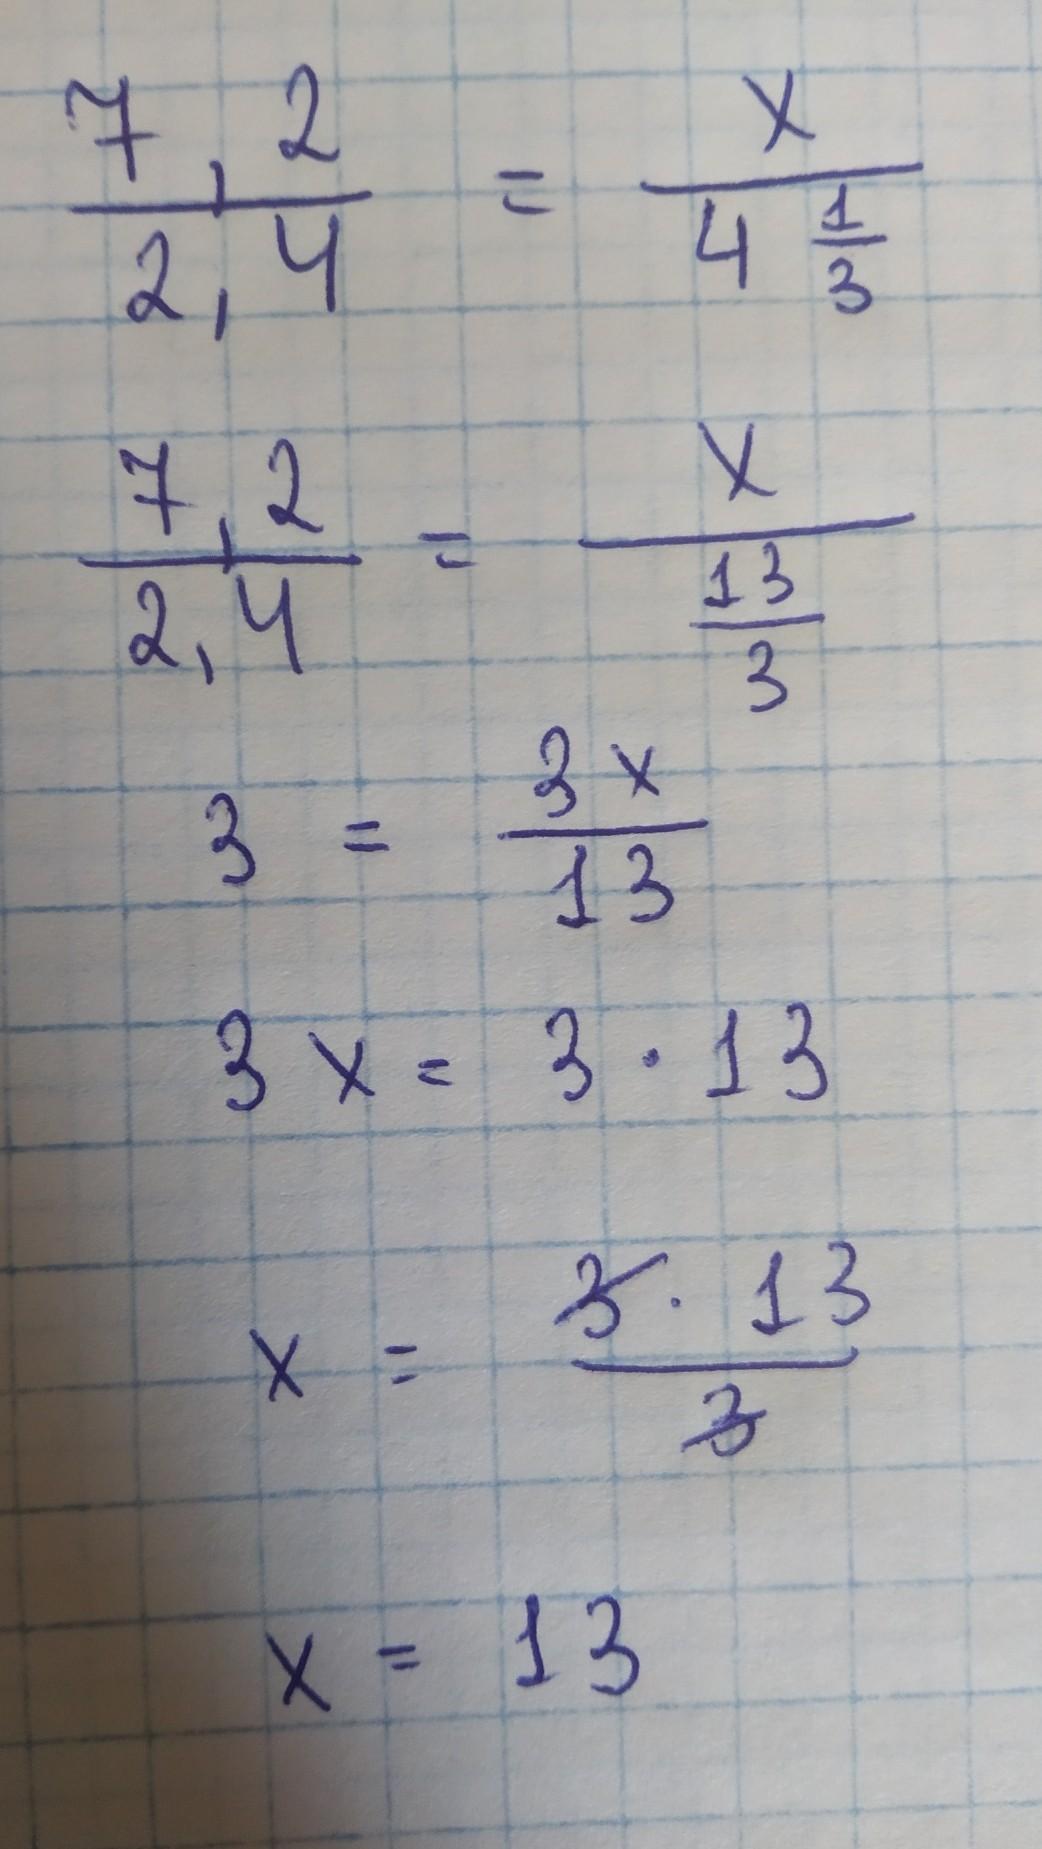 7,2/2,4 = x/(4 1/3)
7,2/2,4 = x/(13/3)
3 = 3x/13
3x = 3 · 13
x = 3 · 13/3
x = 13